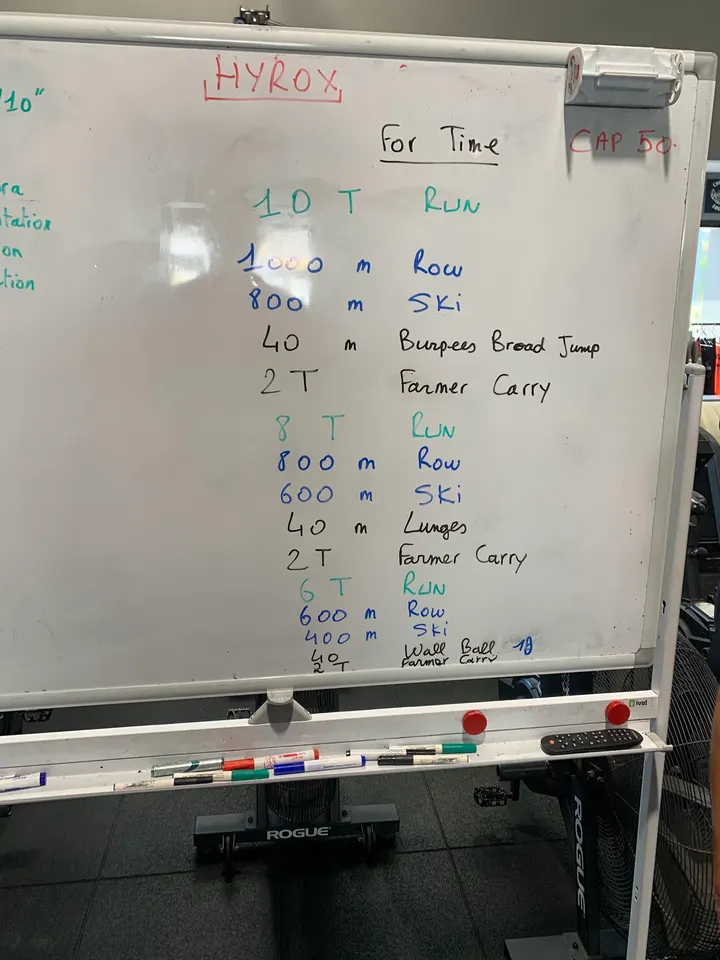 HYROX
"10"
For Time
CAP 50.
10 T RUN
1000 m Row
800 m Ski
40 m Burpees Broad Jump
2 T Farmer Carry
8 T RUN
800 m Row
600 m Ski
40 m Lunges
2 T Farmer Carry
6 T RUN
600 m Row
400 m Ski
40 Wall Ball
2 T Farmer Carry
ra
tation
on
ction
ival
ROGUE
ROGUE